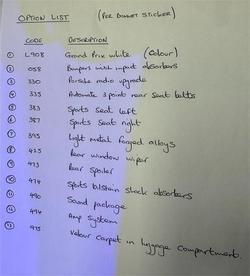 OPTION LIST (PER BONNET STICKER)
CODE DESCRIPTION
① L908 Grand Prix white (Colour)
② 058 Bumpers with impact absorbers
③ 330 Porsche radio upgrade
④ 335 Automatic 3 point rear seat belts
⑤ 383 Sports Seat left
⑥ 387 Sports Seat right
⑦ 395 Light metal forged alloys
⑧ 425 Rear window wiper
⑨ 473 Rear Spoiler
⑩ 474 Sports bilstein shock absorbers
⑪ 490 Sound package
⑫ 494 Amp System
⑬ 975 Velour carpet in luggage compartment.